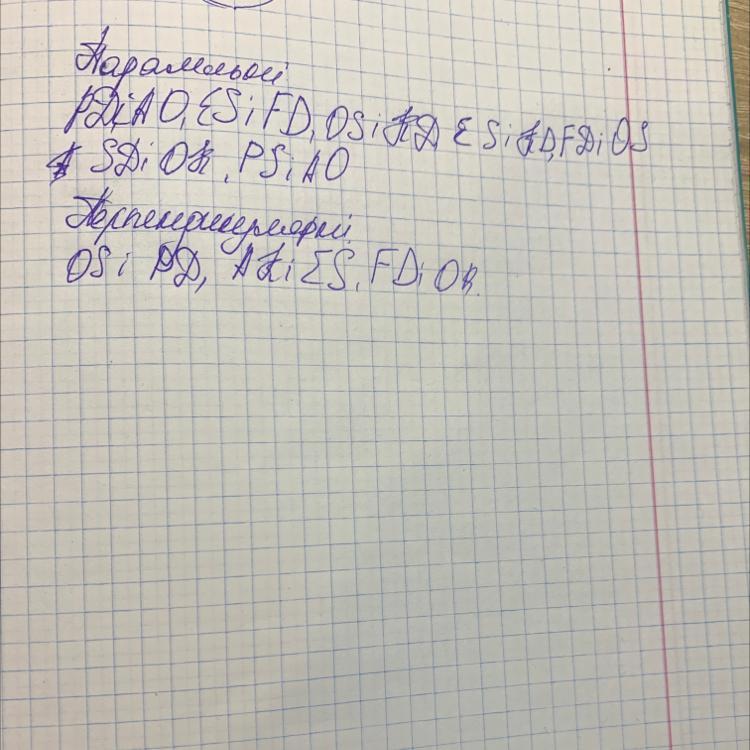 Паралельні
PD і AO, ES і FD, OS і KD, ES і KD, FD і OS
SD і OK, PS і AO
Перпендикулярні
OS і PD, AK і ES, FD і OK.